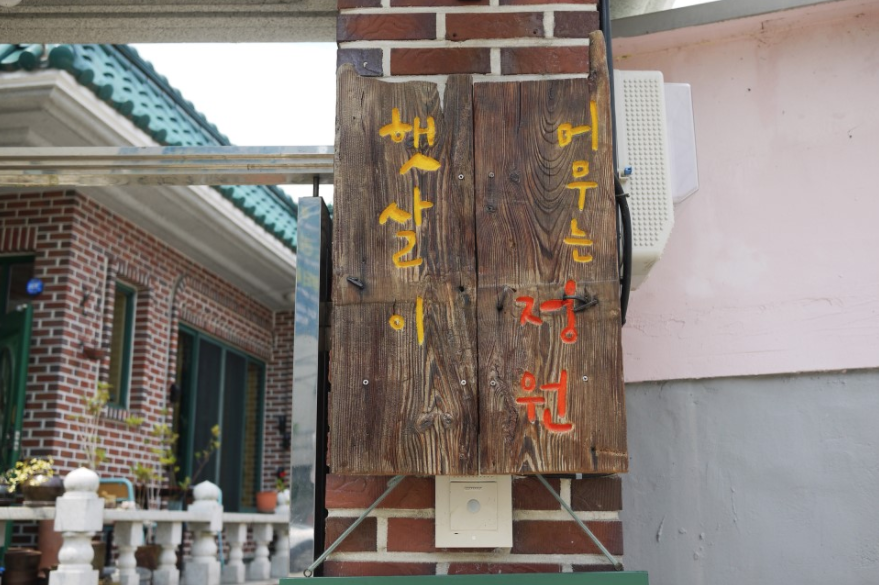 햇살이
머무는
정원